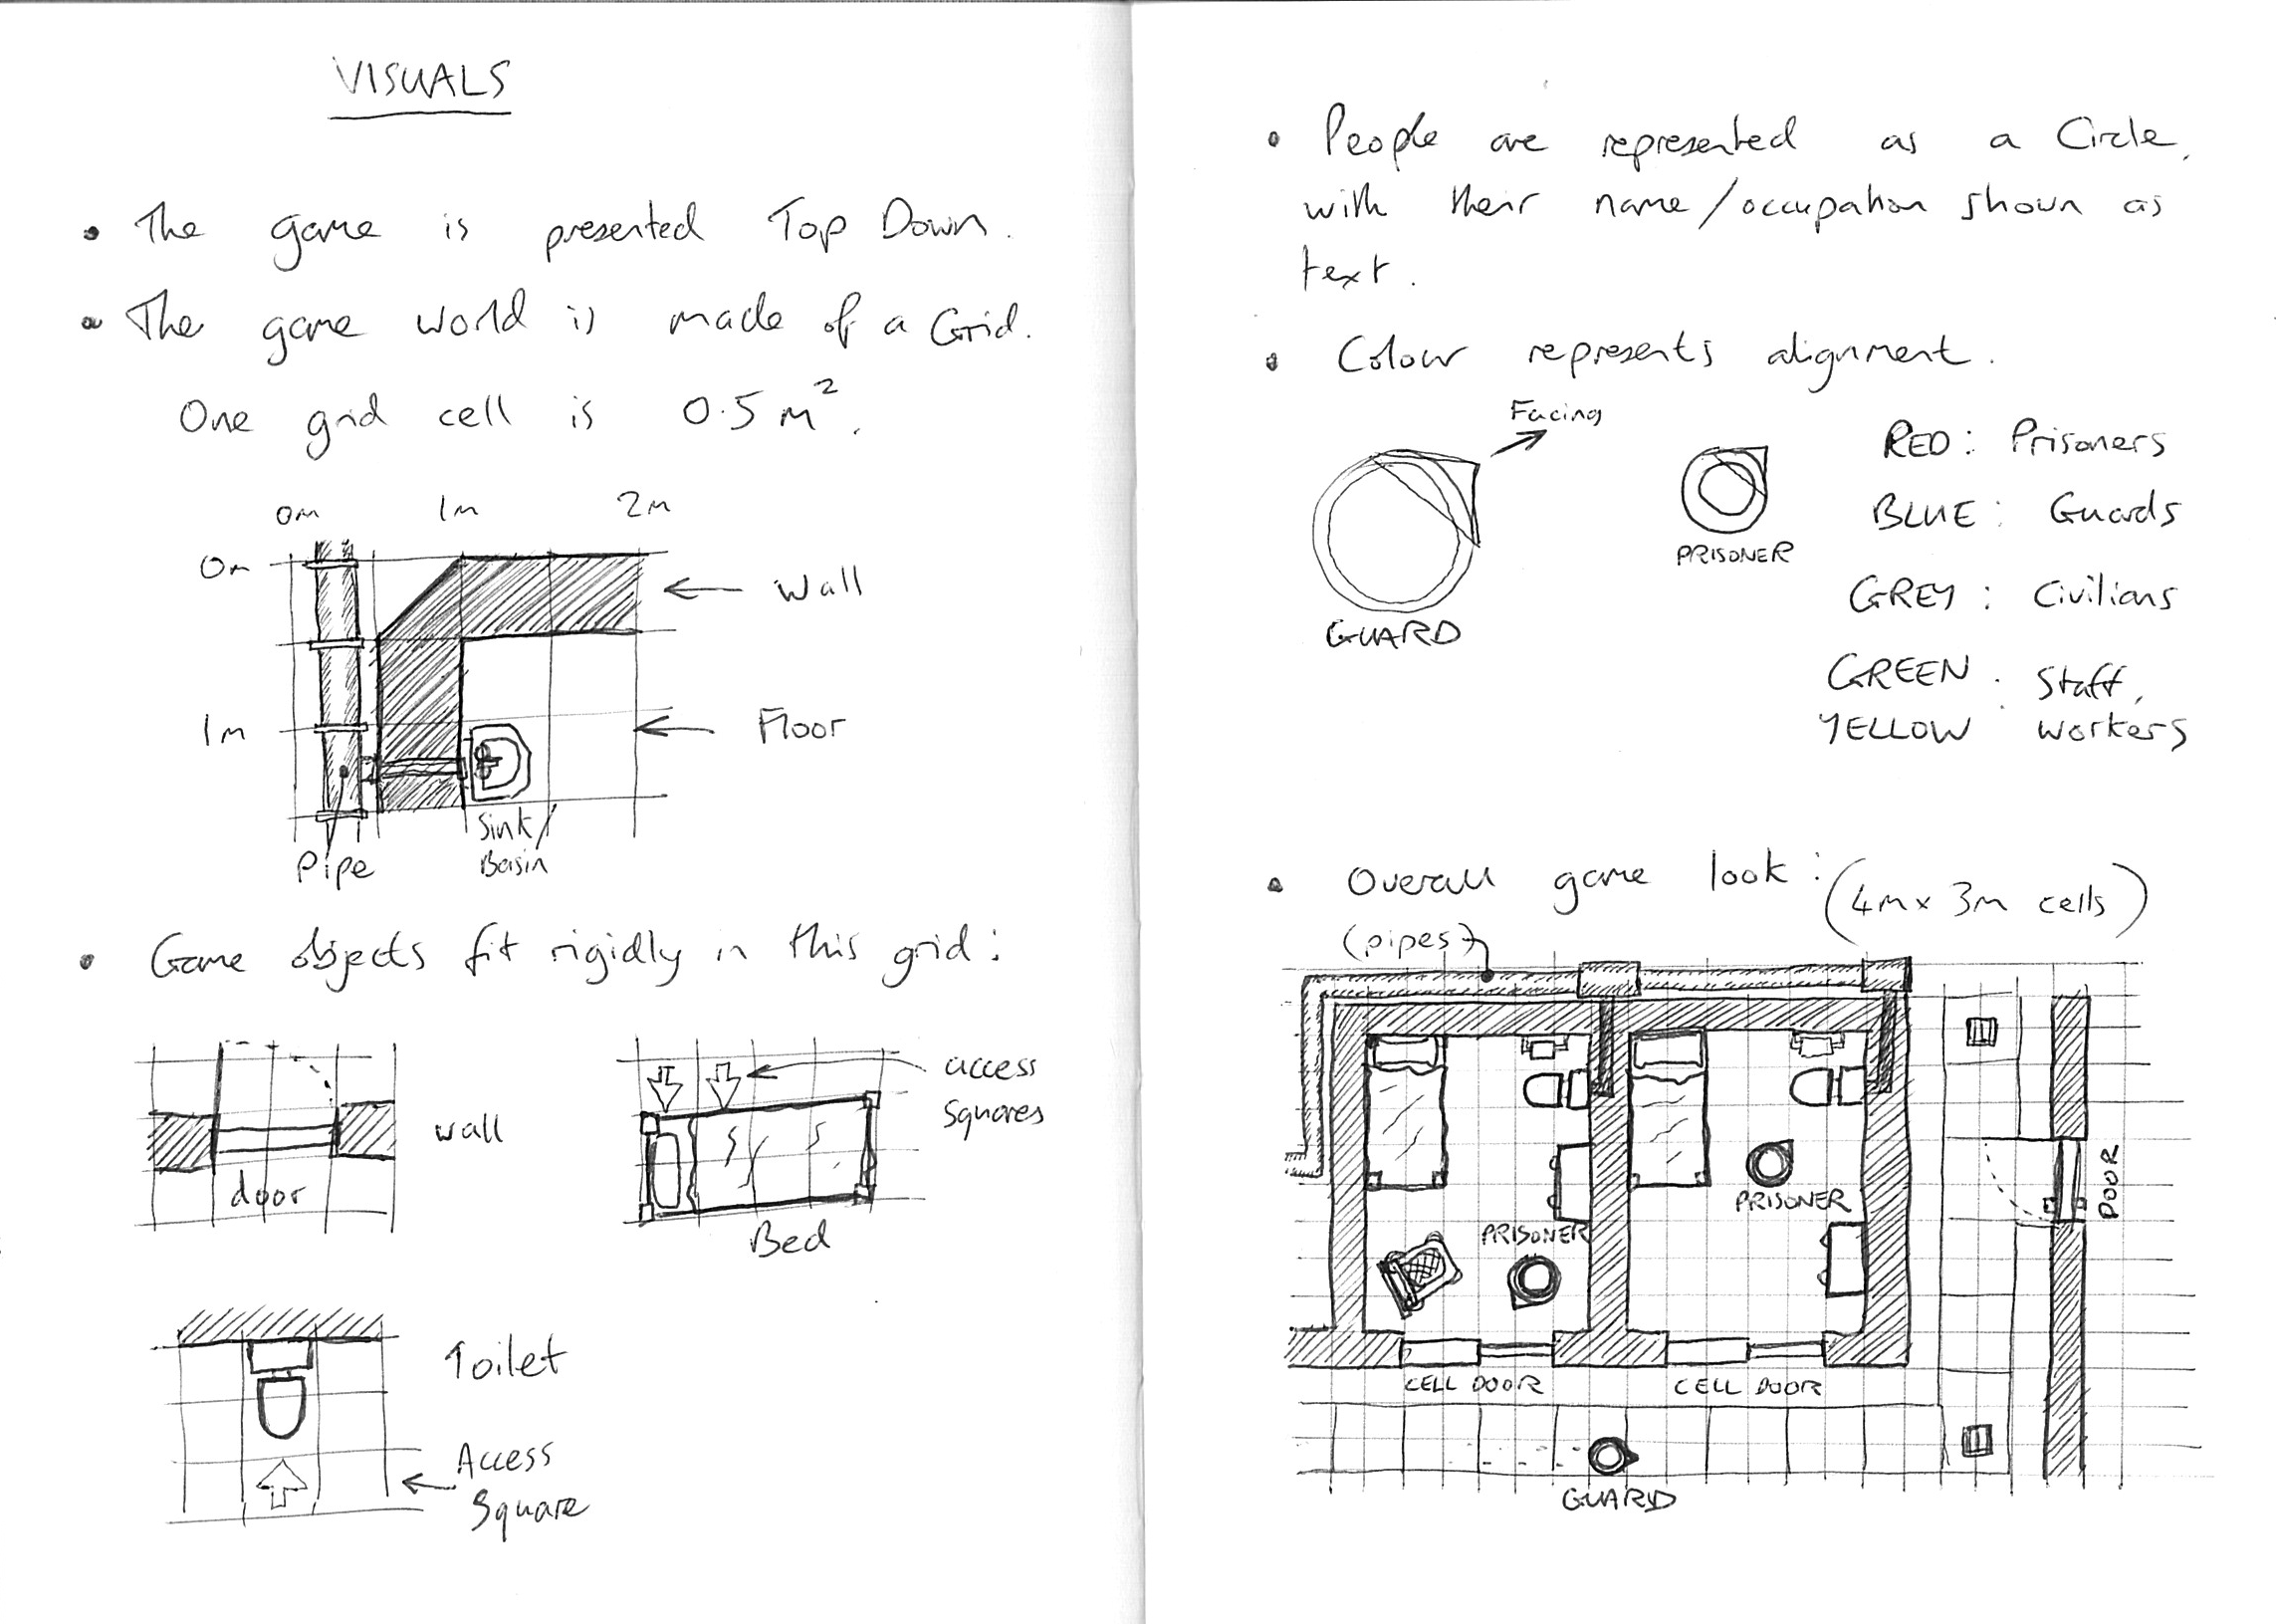 VISUALS
• The game is presented Top Down.
• The game world is made of a Grid.
One grid cell is 0.5m².
0m 1m 2m
0m
Wall
1m
Floor
Sink/
Basin
Pipe
• Game objects fit rigidly in this grid:
wall
door
access
squares
Bed
Toilet
Access
Square
• People are represented as a Circle,
with their name/occupation shown as
text.
• Colour represents alignment.
Facing
GUARD
PRISONER
RED: Prisoners
BLUE: Guards
GREY: Civilians
GREEN: Staff,
YELLOW workers
• Overall game look: (4m x 3m cells)
(pipes)
PRISONER
PRISONER
DOOR
CELL DOOR
CELL DOOR
GUARD